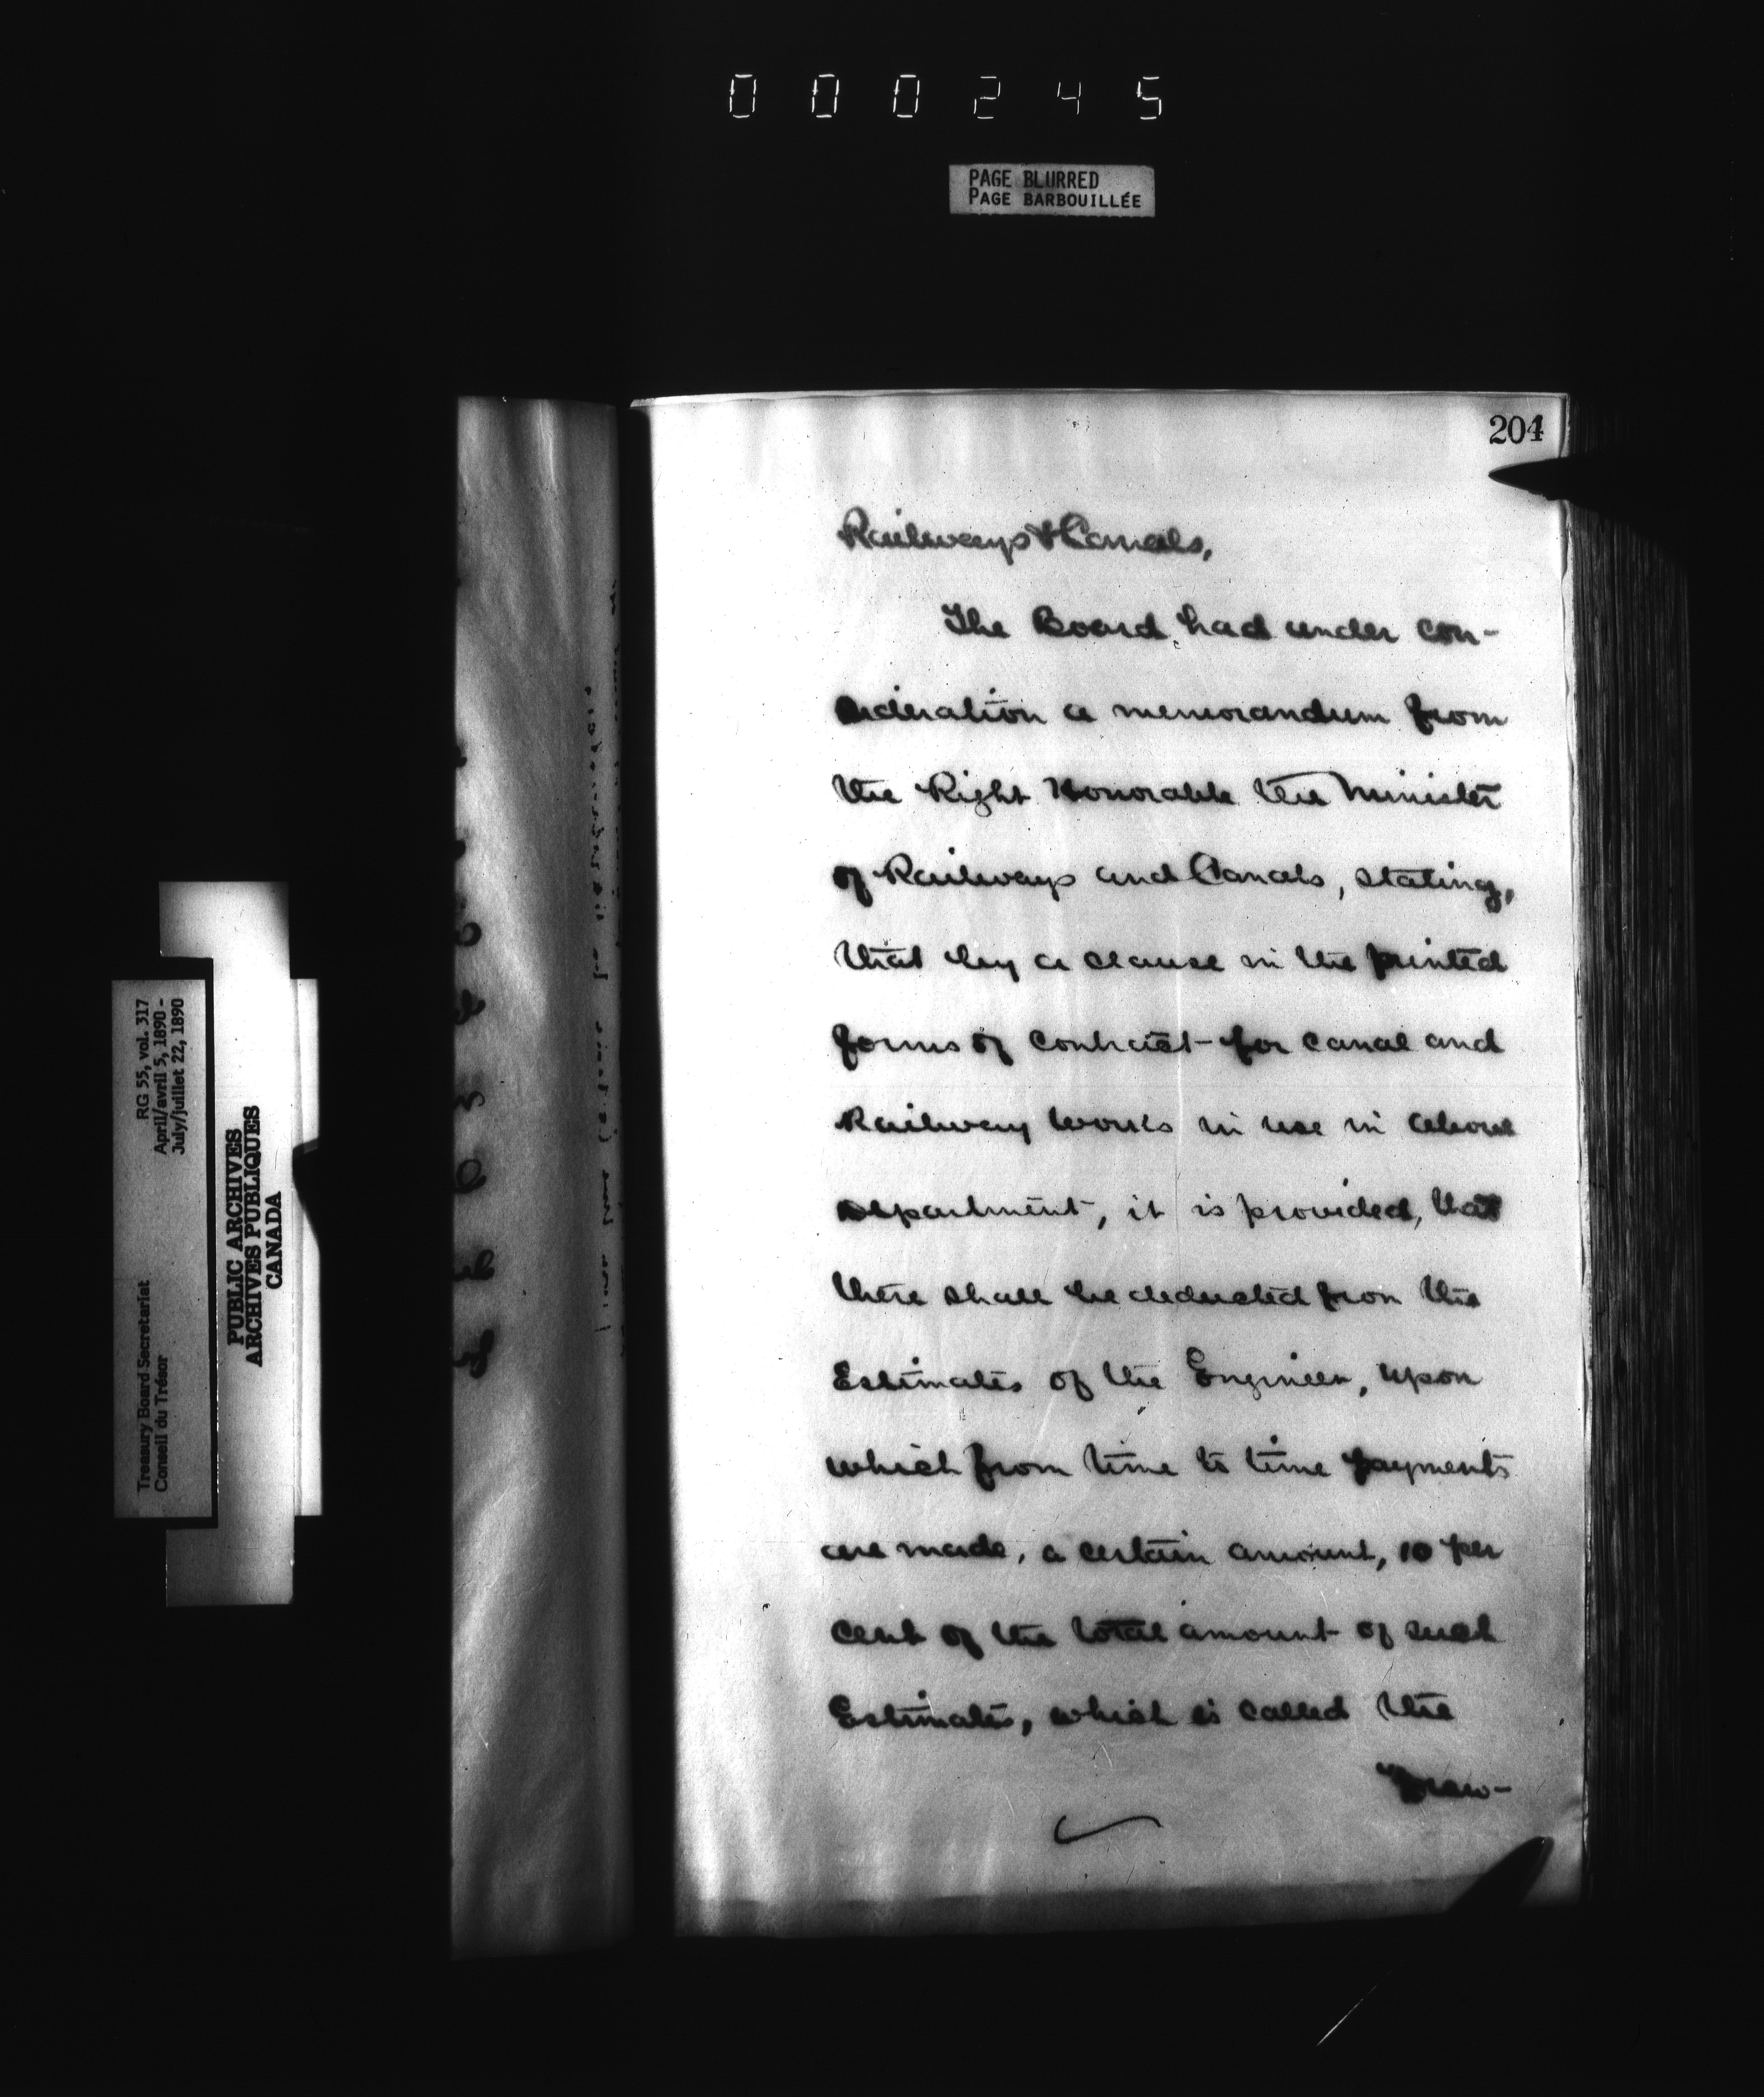 000245
PAGE BLURRED
PAGE BARBOUILLÉE
204
Railways & Canals,
The Board had under con-
sideration a memorandum from
the Right Honorable the Minister
of Railways and Canals, stating,
that by a clause in the printed
forms of contract for canal and
Railway works in use in above
Department, it is provided, that
there shall be deducted from the
Estimates of the Engineer, upon
which from time to time payments
are made, a certain amount, 10 per
cent of the total amount of such
Estimates, which is called the
"Draw-
RG 55, vol. 317
April/avril 5, 1890 -
July/juillet 22, 1890
Treasury Board Secretariat
Conseil du Trésor
PUBLIC ARCHIVES
ARCHIVES PUBLIQUES
CANADA